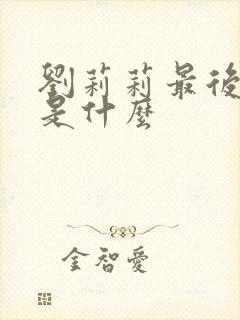 劉莉莉最後
是什麼
金智愛